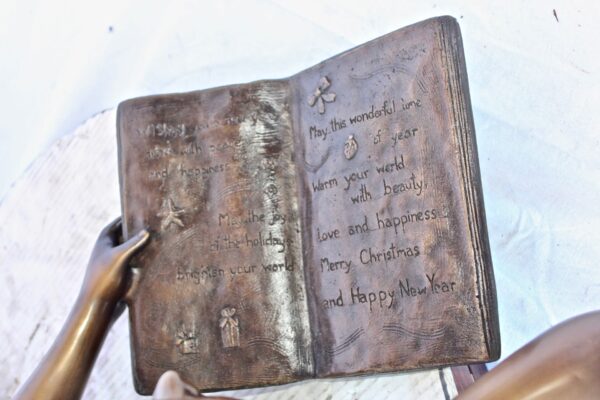 Wishing you
and happiness
May the joy
of the holidays
brighten your world
May this wonderful time
of year
Warm your world
with beauty,
love and happiness
Merry Christmas
and Happy New Year